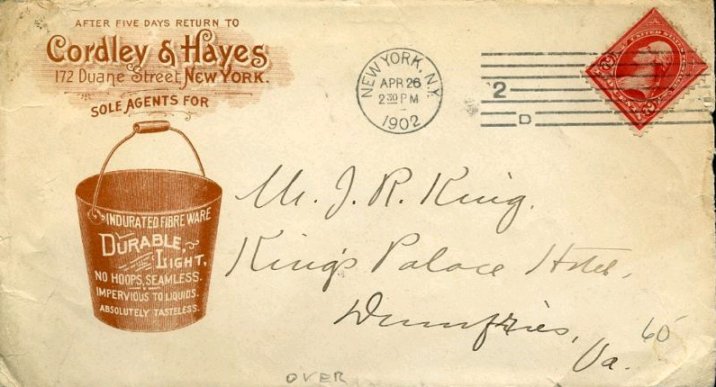 AFTER FIVE DAYS RETURN TO
Cordley & Hayes
172 Duane Street, NEW YORK.
SOLE AGENTS FOR
INDURATED FIBRE WARE
DURABLE,
LIGHT,
NO HOOPS, SEAMLESS.
IMPERVIOUS TO LIQUIDS.
ABSOLUTELY TASTELESS.
NEW YORK, N.Y.
APR 26
2 30 PM
1902
2
D
Mr. J. R. King.
King's Palace Hotel,
Dumfries,
Va.
60
OVER